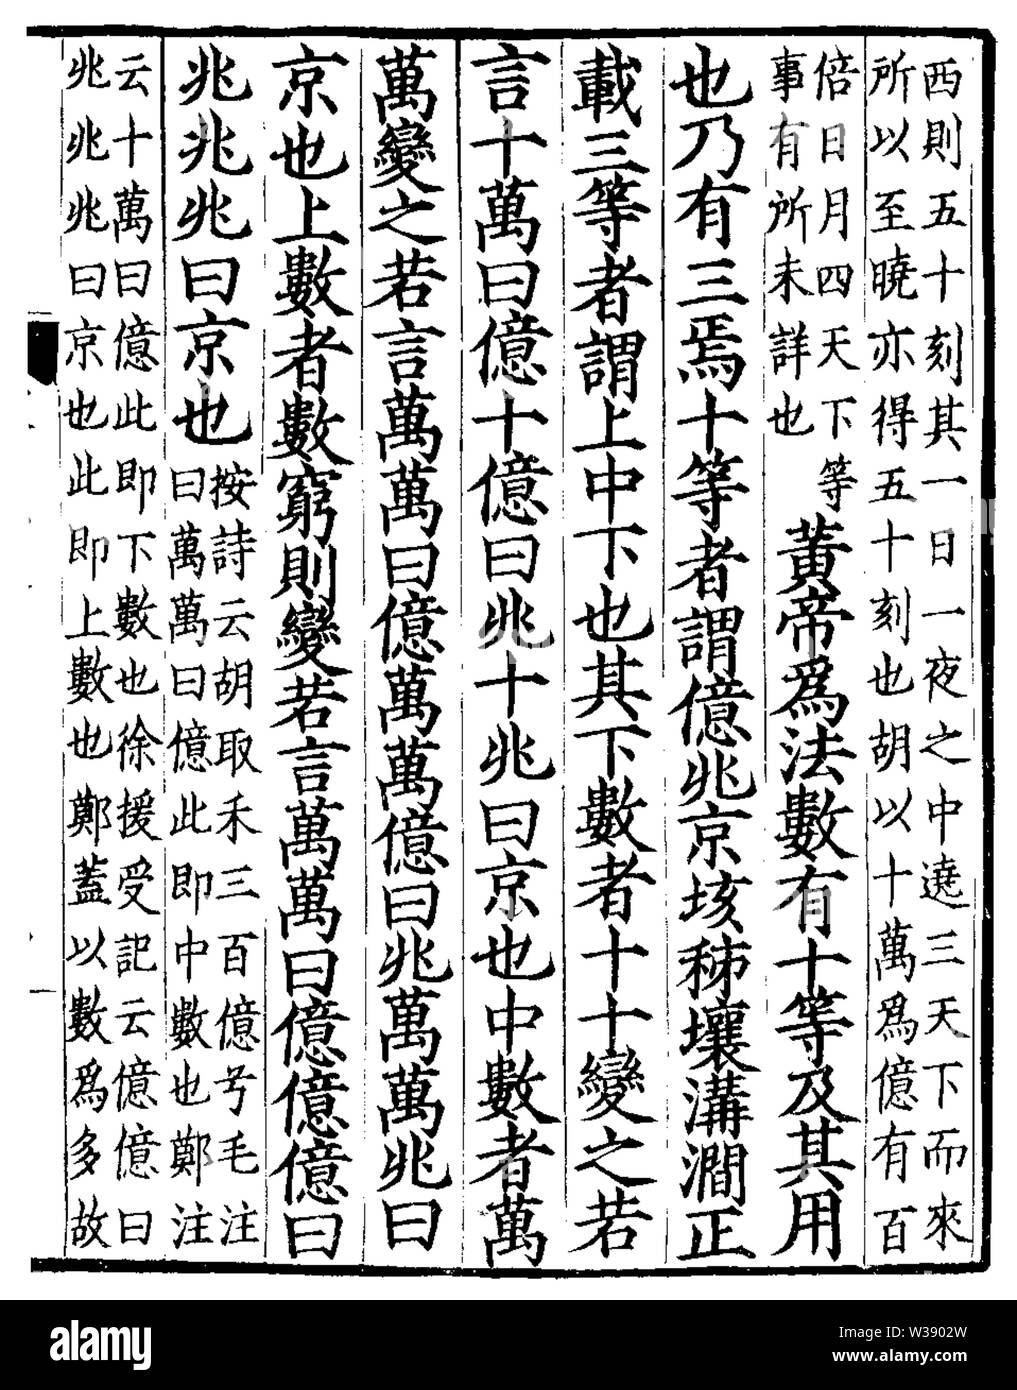 西則五十刻其一日一夜之中遶三天下而來
所以至曉亦得五十刻也胡以十萬爲億有百
倍日月四天下等
事有所未詳也
黃帝爲法數有十等及其用
也乃有三焉十等者謂億兆京垓秭壤溝澗正
載三等者謂上中下也其下數者十十變之若
言十萬曰億十億曰兆十兆曰京也中數者萬
萬變之若言萬萬曰億萬萬億曰兆萬萬兆曰
京也上數者數窮則變若言萬萬曰億億億曰
兆兆兆曰京也
按詩云胡取禾三百億兮毛注
曰萬萬曰億此即中數也鄭注
云十萬曰億此即下數也徐援受記云億億曰
兆兆兆曰京也此即上數也鄭蓋以數爲多故
alamy
Image ID: W3902W
www.alamy.com